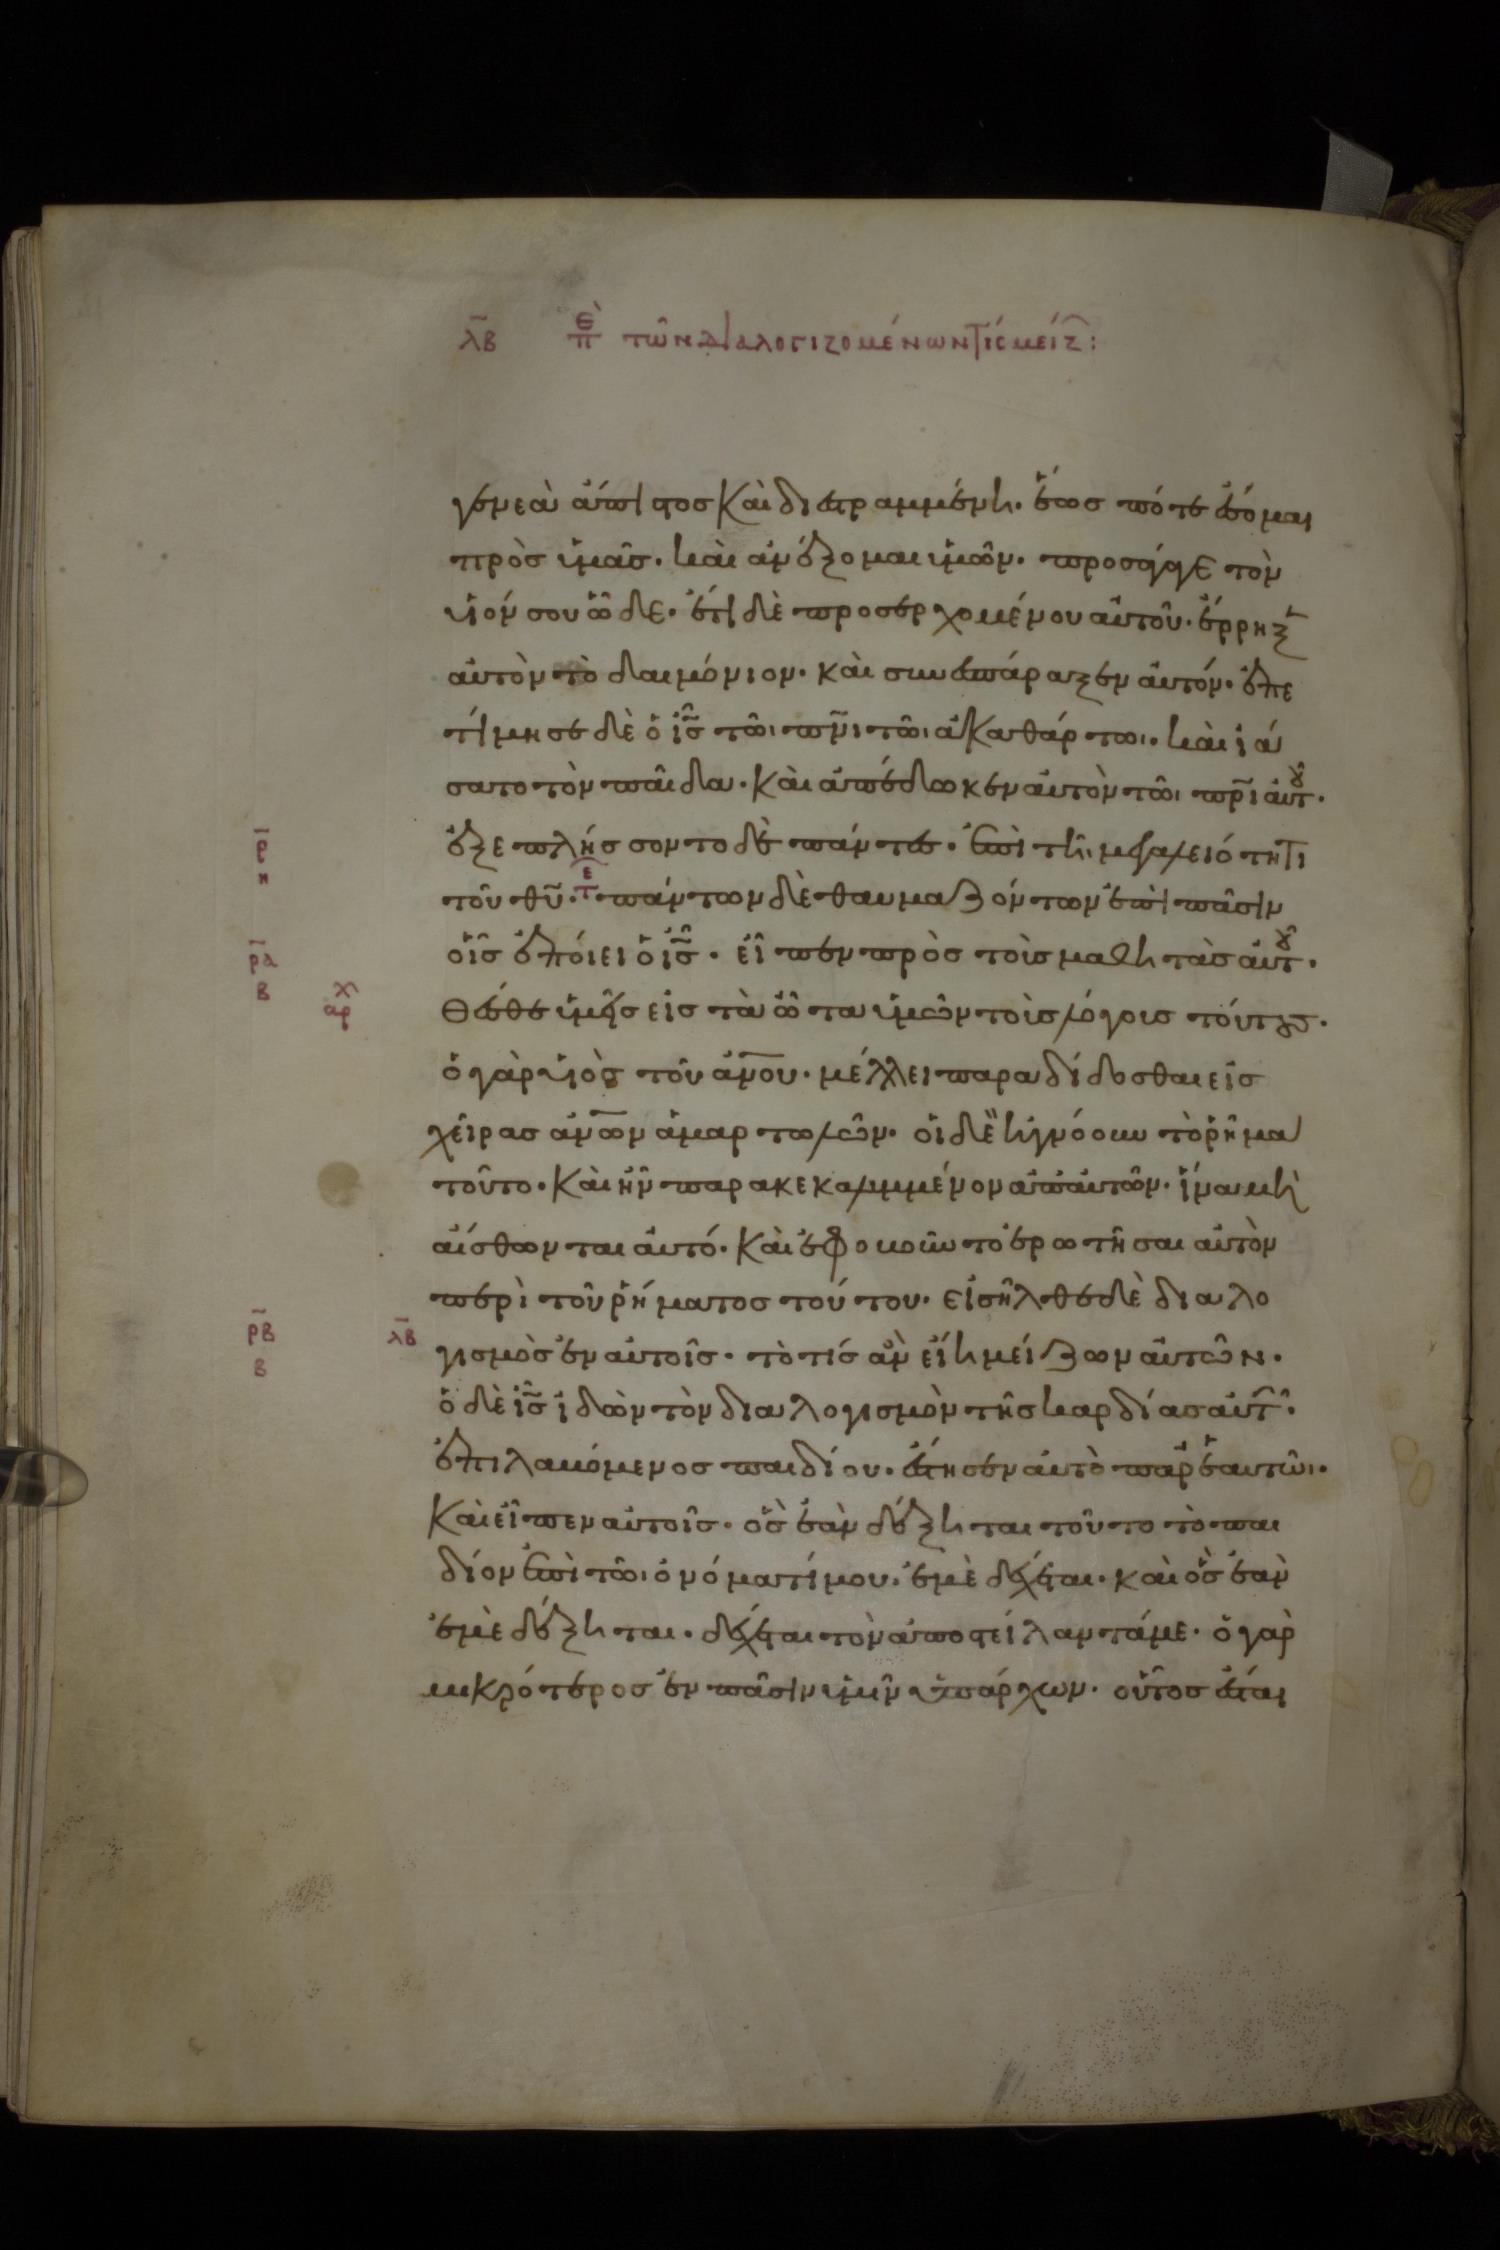 λ̅β̅ πὲ τῶν διαλογιζομένων τίς μείζ:
γενεὰ ἄπιστος καὶ διεστραμμένη. ἕως πότε ἔσομαι
πρὸς ὑμᾶς. καὶ ἀνέξομαι ὑμῶν. προσάγαγε τὸν
υἱόν σου ὧδε. ἔτι δὲ προσερχομένου αὐτοῦ. ἔρρηξ
αὐτὸν τὸ δαιμόνιον. καὶ συνεσπάραξεν αὐτόν. ἐπε
τίμησε δὲ ὁ ι̅ς̅ τῶι π̅ν̅ι τῶι ἀκαθάρτωι. καὶ ἰά
σατο τὸν παῖδα. καὶ ἀπέδωκεν αὐτὸν τῶι π̅ρ̅ι αὐτοῦ.
ρ̅
η
ἐξεπλήσσοντο δὲ πάντες. ἐπὶ τῆι μεγαλειότητι
τοῦ θ̅υ̅. τε πάντων δὲ θαυμαζόντων ἐπὶ πᾶσιν
ρ̅α̅
β
οἷς ἐποίει ὁ ι̅ς̅. εἶπεν πρὸς τοὺς μαθητὰς αὐτοῦ.
αρχ
θέσθε ὑμεῖς εἰς τὰ ὦτα ὑμῶν τοὺς λόγους τούτους.
ὁ γὰρ υἱὸς τοῦ α̅ν̅ο̅υ̅. μέλλει παραδίδοσθαι εἰς
χεῖρας α̅ν̅ω̅ν̅ ἁμαρτωλῶν. οἱ δὲ ἠγνόουν τὸ ῥῆμα
τοῦτο. καὶ ἦν παρακεκαλυμμένον ἀπ' αὐτῶν. ἵνα μὴ
αἴσθωνται αὐτό. καὶ ἐφοβοῦντο ἐρωτῆσαι αὐτὸν
περὶ τοῦ ῥήματος τούτου. εἰσῆλθε δὲ διαλο
ρ̅β̅
β
λ̅β̅
γισμὸς ἐν αὐτοῖς. τὸ τίς ἂν εἴη μείζων αὐτῶν.
ὁ δὲ ι̅ς̅ ἰδὼν τὸν διαλογισμὸν τῆς καρδίας αὐτ.
ἐπιλαβόμενος παιδίου. ἔστησεν αὐτὸ παρ' ἑαυτῶι.
καὶ εἶπεν αὐτοῖς. ὃς ἐὰν δέξηται τοῦτο τὸ παι
δίον ἐπὶ τῶι ὀνόματί μου. ἐμὲ δέχεται. καὶ ὃς ἐὰν
ἐμὲ δέξηται. δέχεται τὸν ἀποστείλαντά με. ὁ γὰρ
μικρότερος ἐν πᾶσιν ὑμῖν ὑπάρχων. οὗτος ἔσται